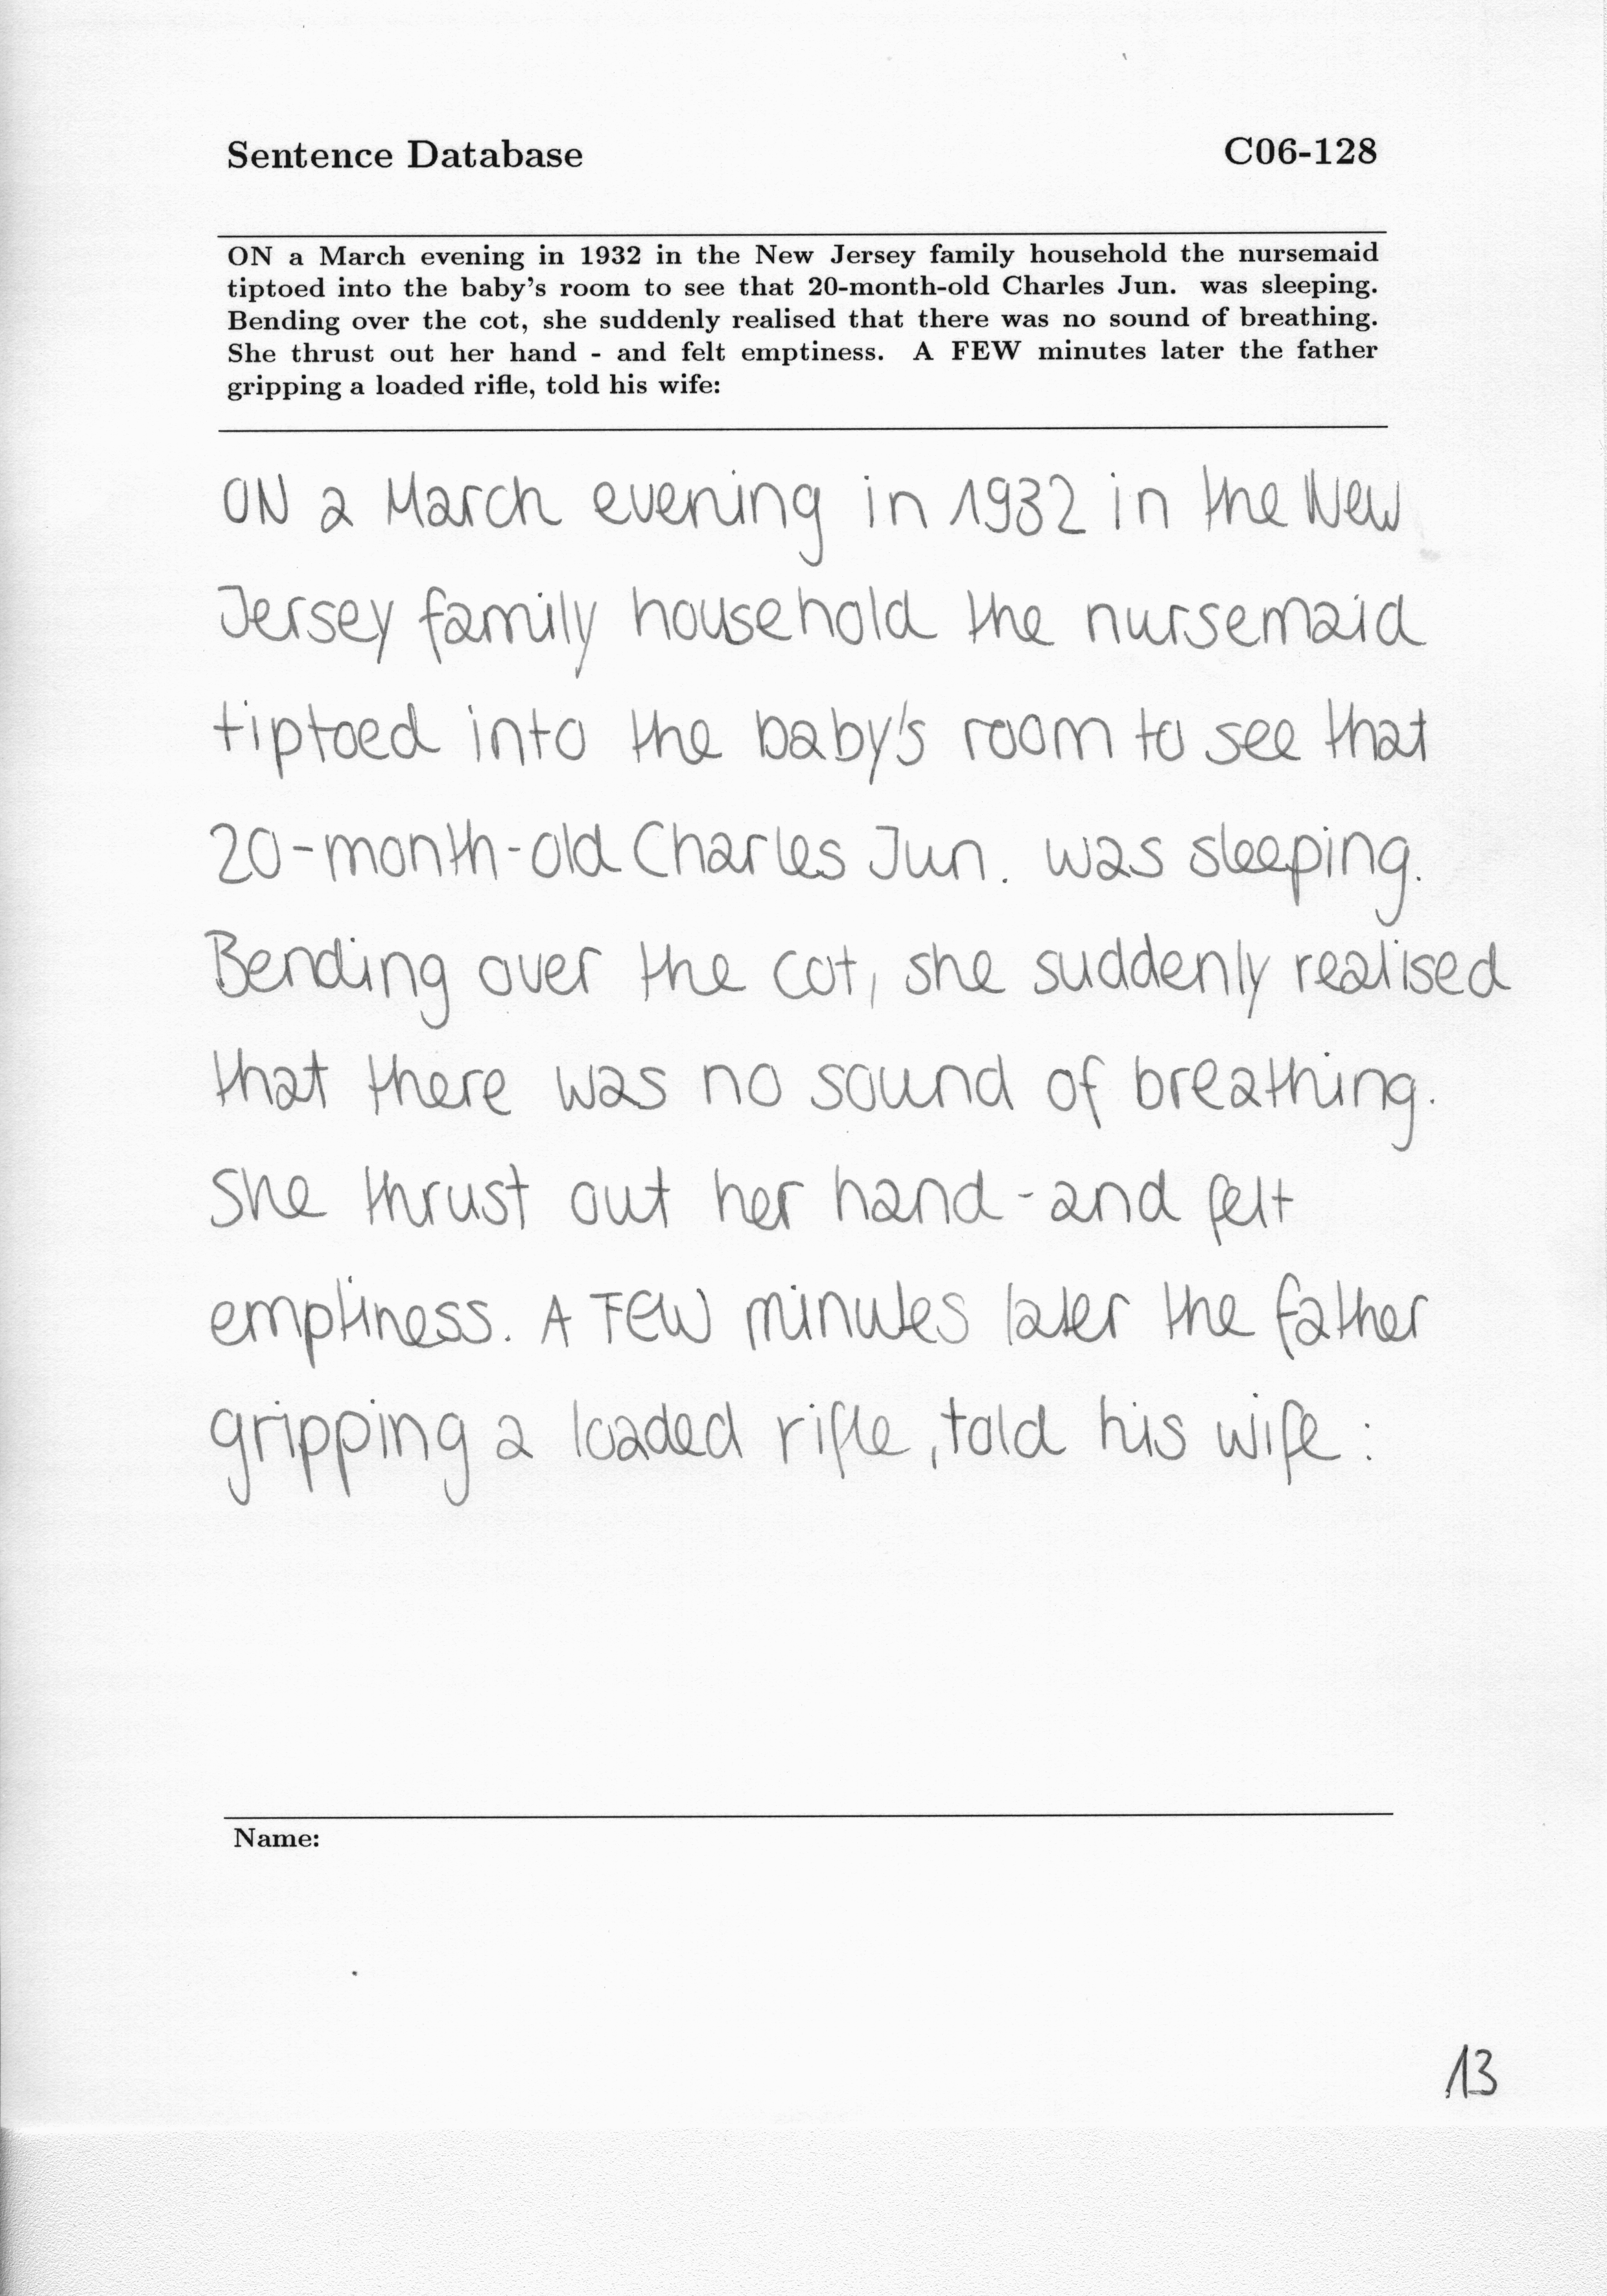 Sentence Database C06-128
ON a March evening in 1932 in the New Jersey family household the nursemaid
tiptoed into the baby's room to see that 20-month-old Charles Jun. was sleeping.
Bending over the cot, she suddenly realised that there was no sound of breathing.
She thrust out her hand - and felt emptiness. A FEW minutes later the father
gripping a loaded rifle, told his wife:
ON a March evening in 1932 in the New
Jersey family household the nursemaid
tiptoed into the baby's room to see that
20-month-old Charles Jun. was sleeping.
Bending over the cot, she suddenly realised
that there was no sound of breathing.
She thrust out her hand - and felt
emptiness. A FEW minutes later the father
gripping a loaded rifle, told his wife:
Name:
13